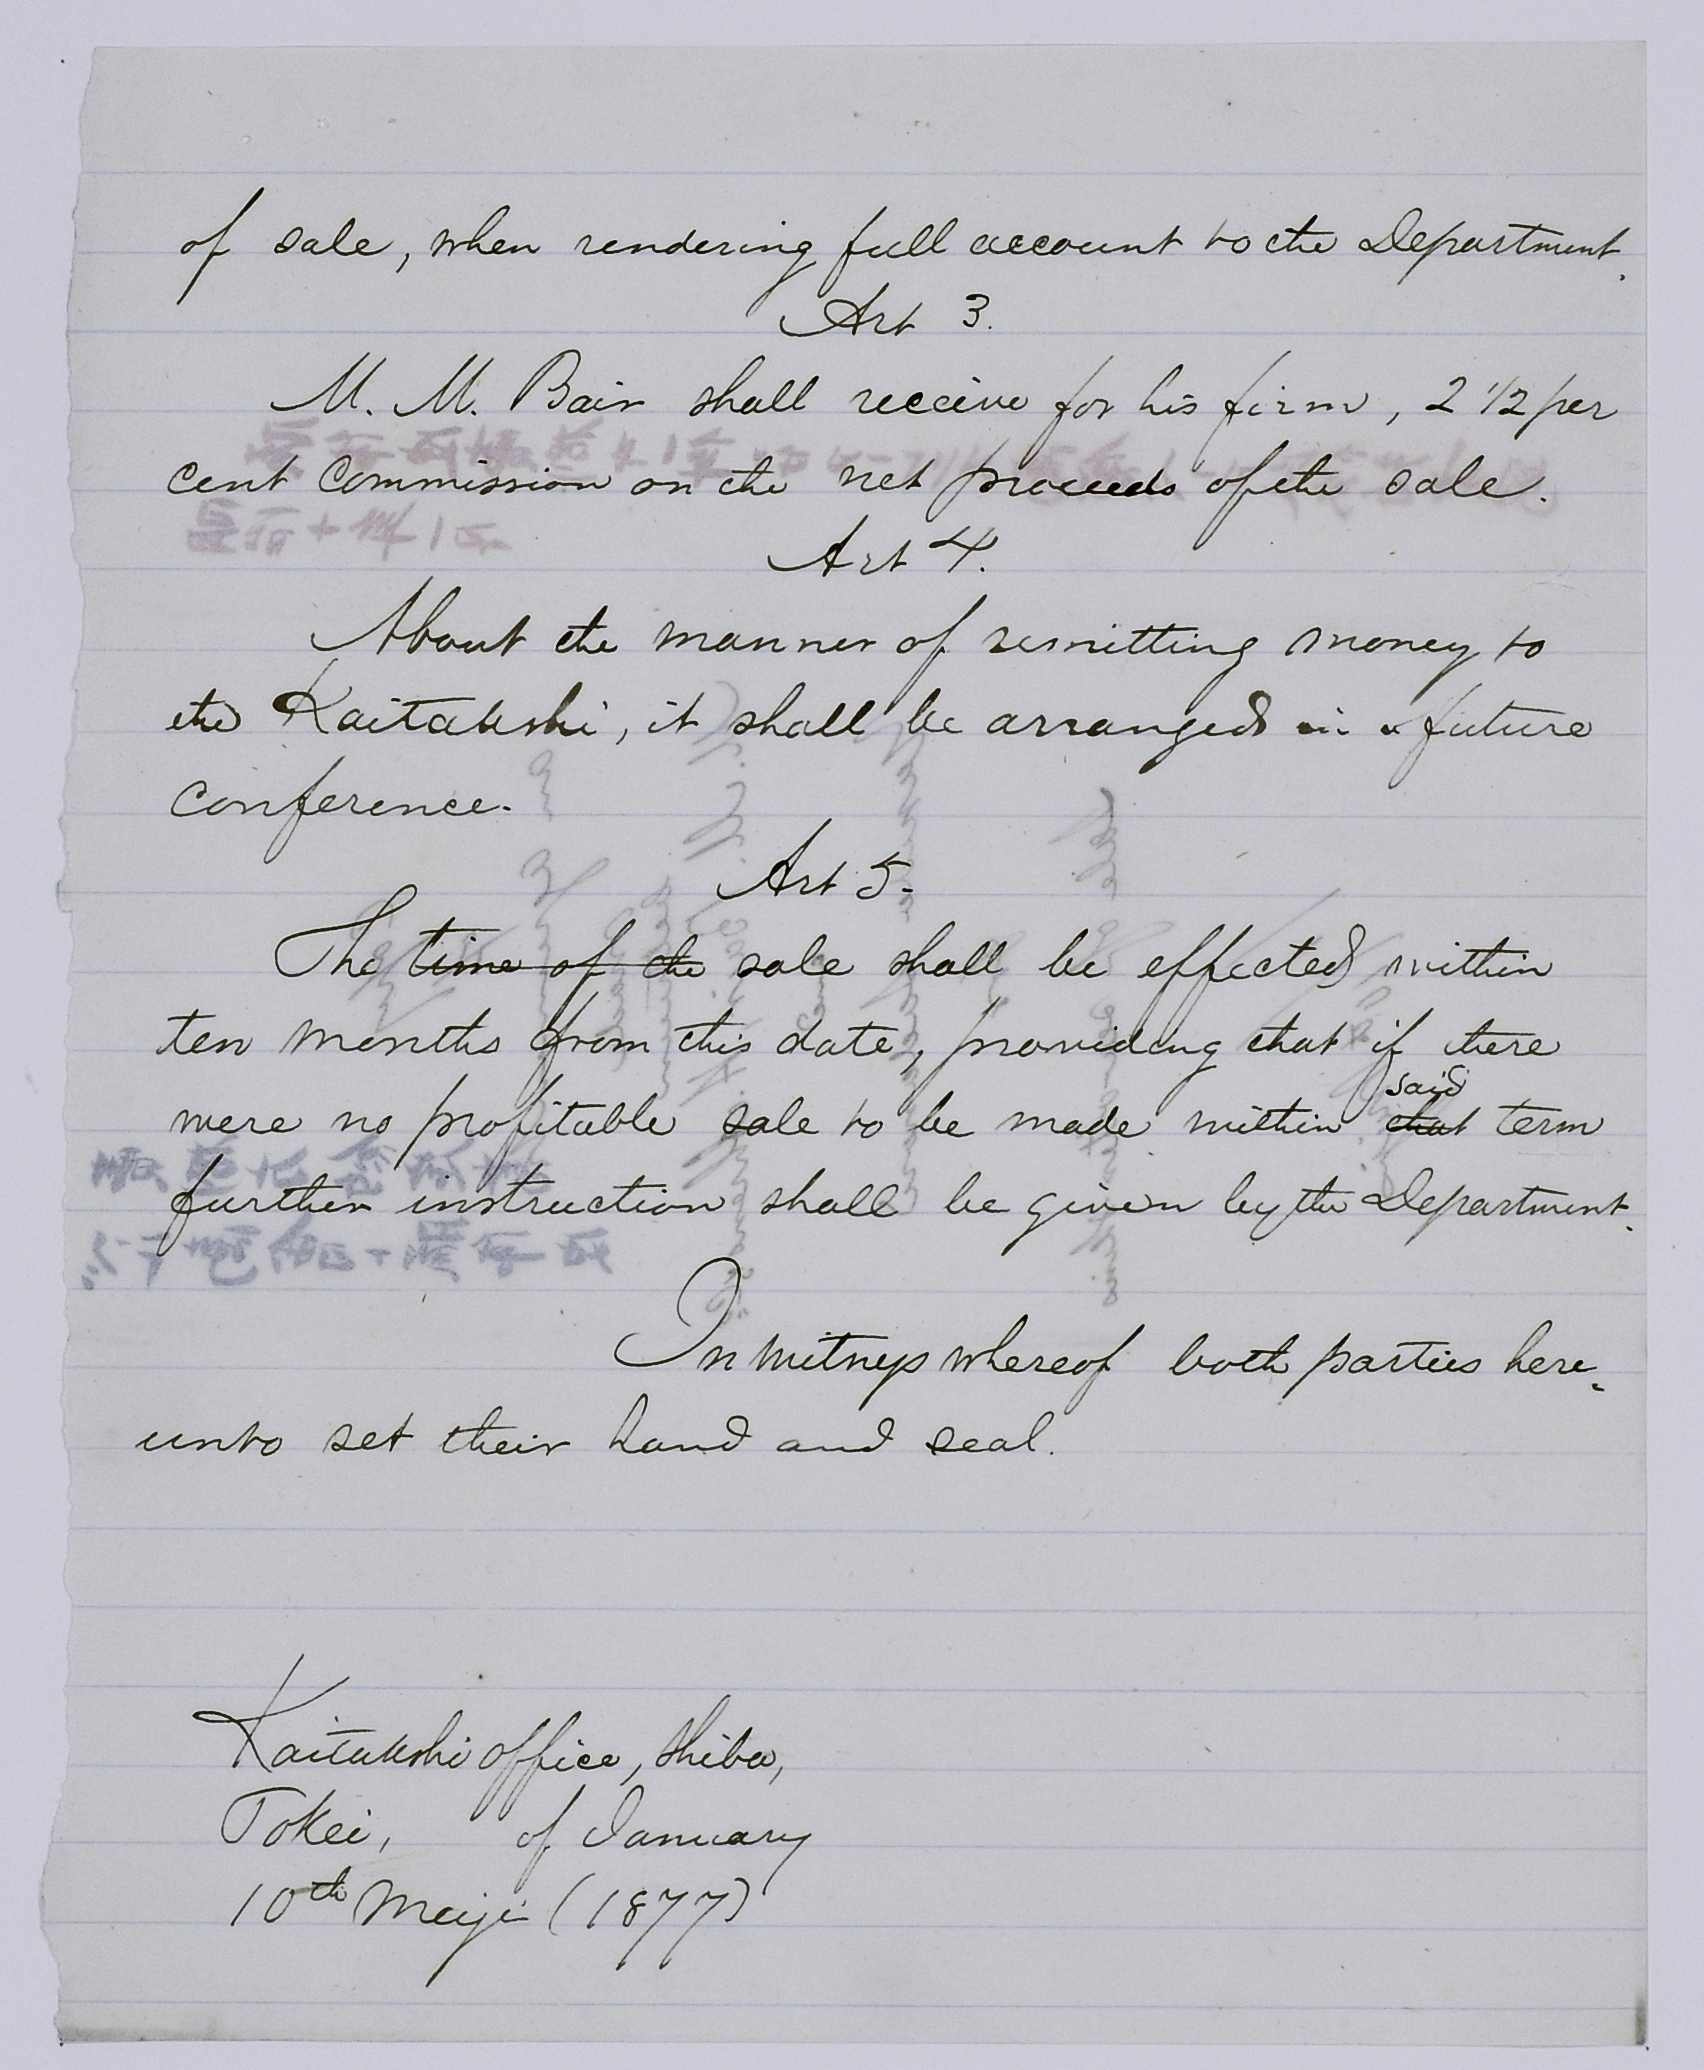 of sale, when rendering full account to the Department.
Art 3.
M. M. Bair shall receive for his firm, 2 1/2 per
cent commission on the net proceeds of the sale.
Art 4.
About the manner of remitting money to
the Kaitakushi, it shall be arranged in a future
conference.
Art 5.
The time of the sale shall be effected within
ten months from this date, providing that if there
said
were no profitable sale to be made within that term
further instruction shall be given by the Department.
In witness whereof both parties here-
unto set their hand and seal.
Kaitakushi office, Shiba,
Tokei, of January
10th Meiji (1877)